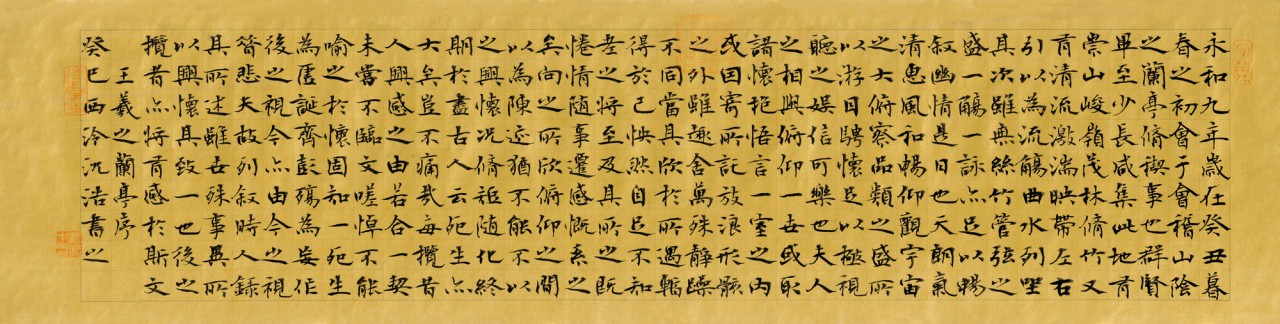 永和九年歲在癸丑暮
春之初會于會稽山陰
之蘭亭脩禊事也群賢
畢至少長咸集此地有
崇山峻嶺茂林脩竹又
有清流激湍映帶左右
引以為流觴曲水列坐
其次雖無絲竹管弦之
盛一觴一詠亦足以暢
敘幽情是日也天朗氣
清惠風和暢仰觀宇宙
之大俯察品類之盛所
以游目騁懷足以極視
聽之娛信可樂也夫人
之相與俯仰一世或取
諸懷抱悟言一室之內
或因寄所託放浪形骸
之外雖趣舍萬殊靜躁
不同當其欣於所遇暫
得於己怏然自足不知
老之將至及其所之既
惓情隨事遷感慨系之
矣向之所欣俯仰之間
以為陳迹猶不能不以
之興懷況脩短隨化終
期於盡古人云死生亦
大矣豈不痛哉每攬昔
人興感之由若合一契
未嘗不臨文嗟悼不能
喻之於懷固知一死生
為虛誕齊彭殤為妄作
後之視今亦由今之視
昔悲夫故列敘時人錄
其所述雖世殊事異所
以興懷其致一也後之
攬者亦將有感於斯文
王羲之蘭亭序
癸巳西泠沈浩書之